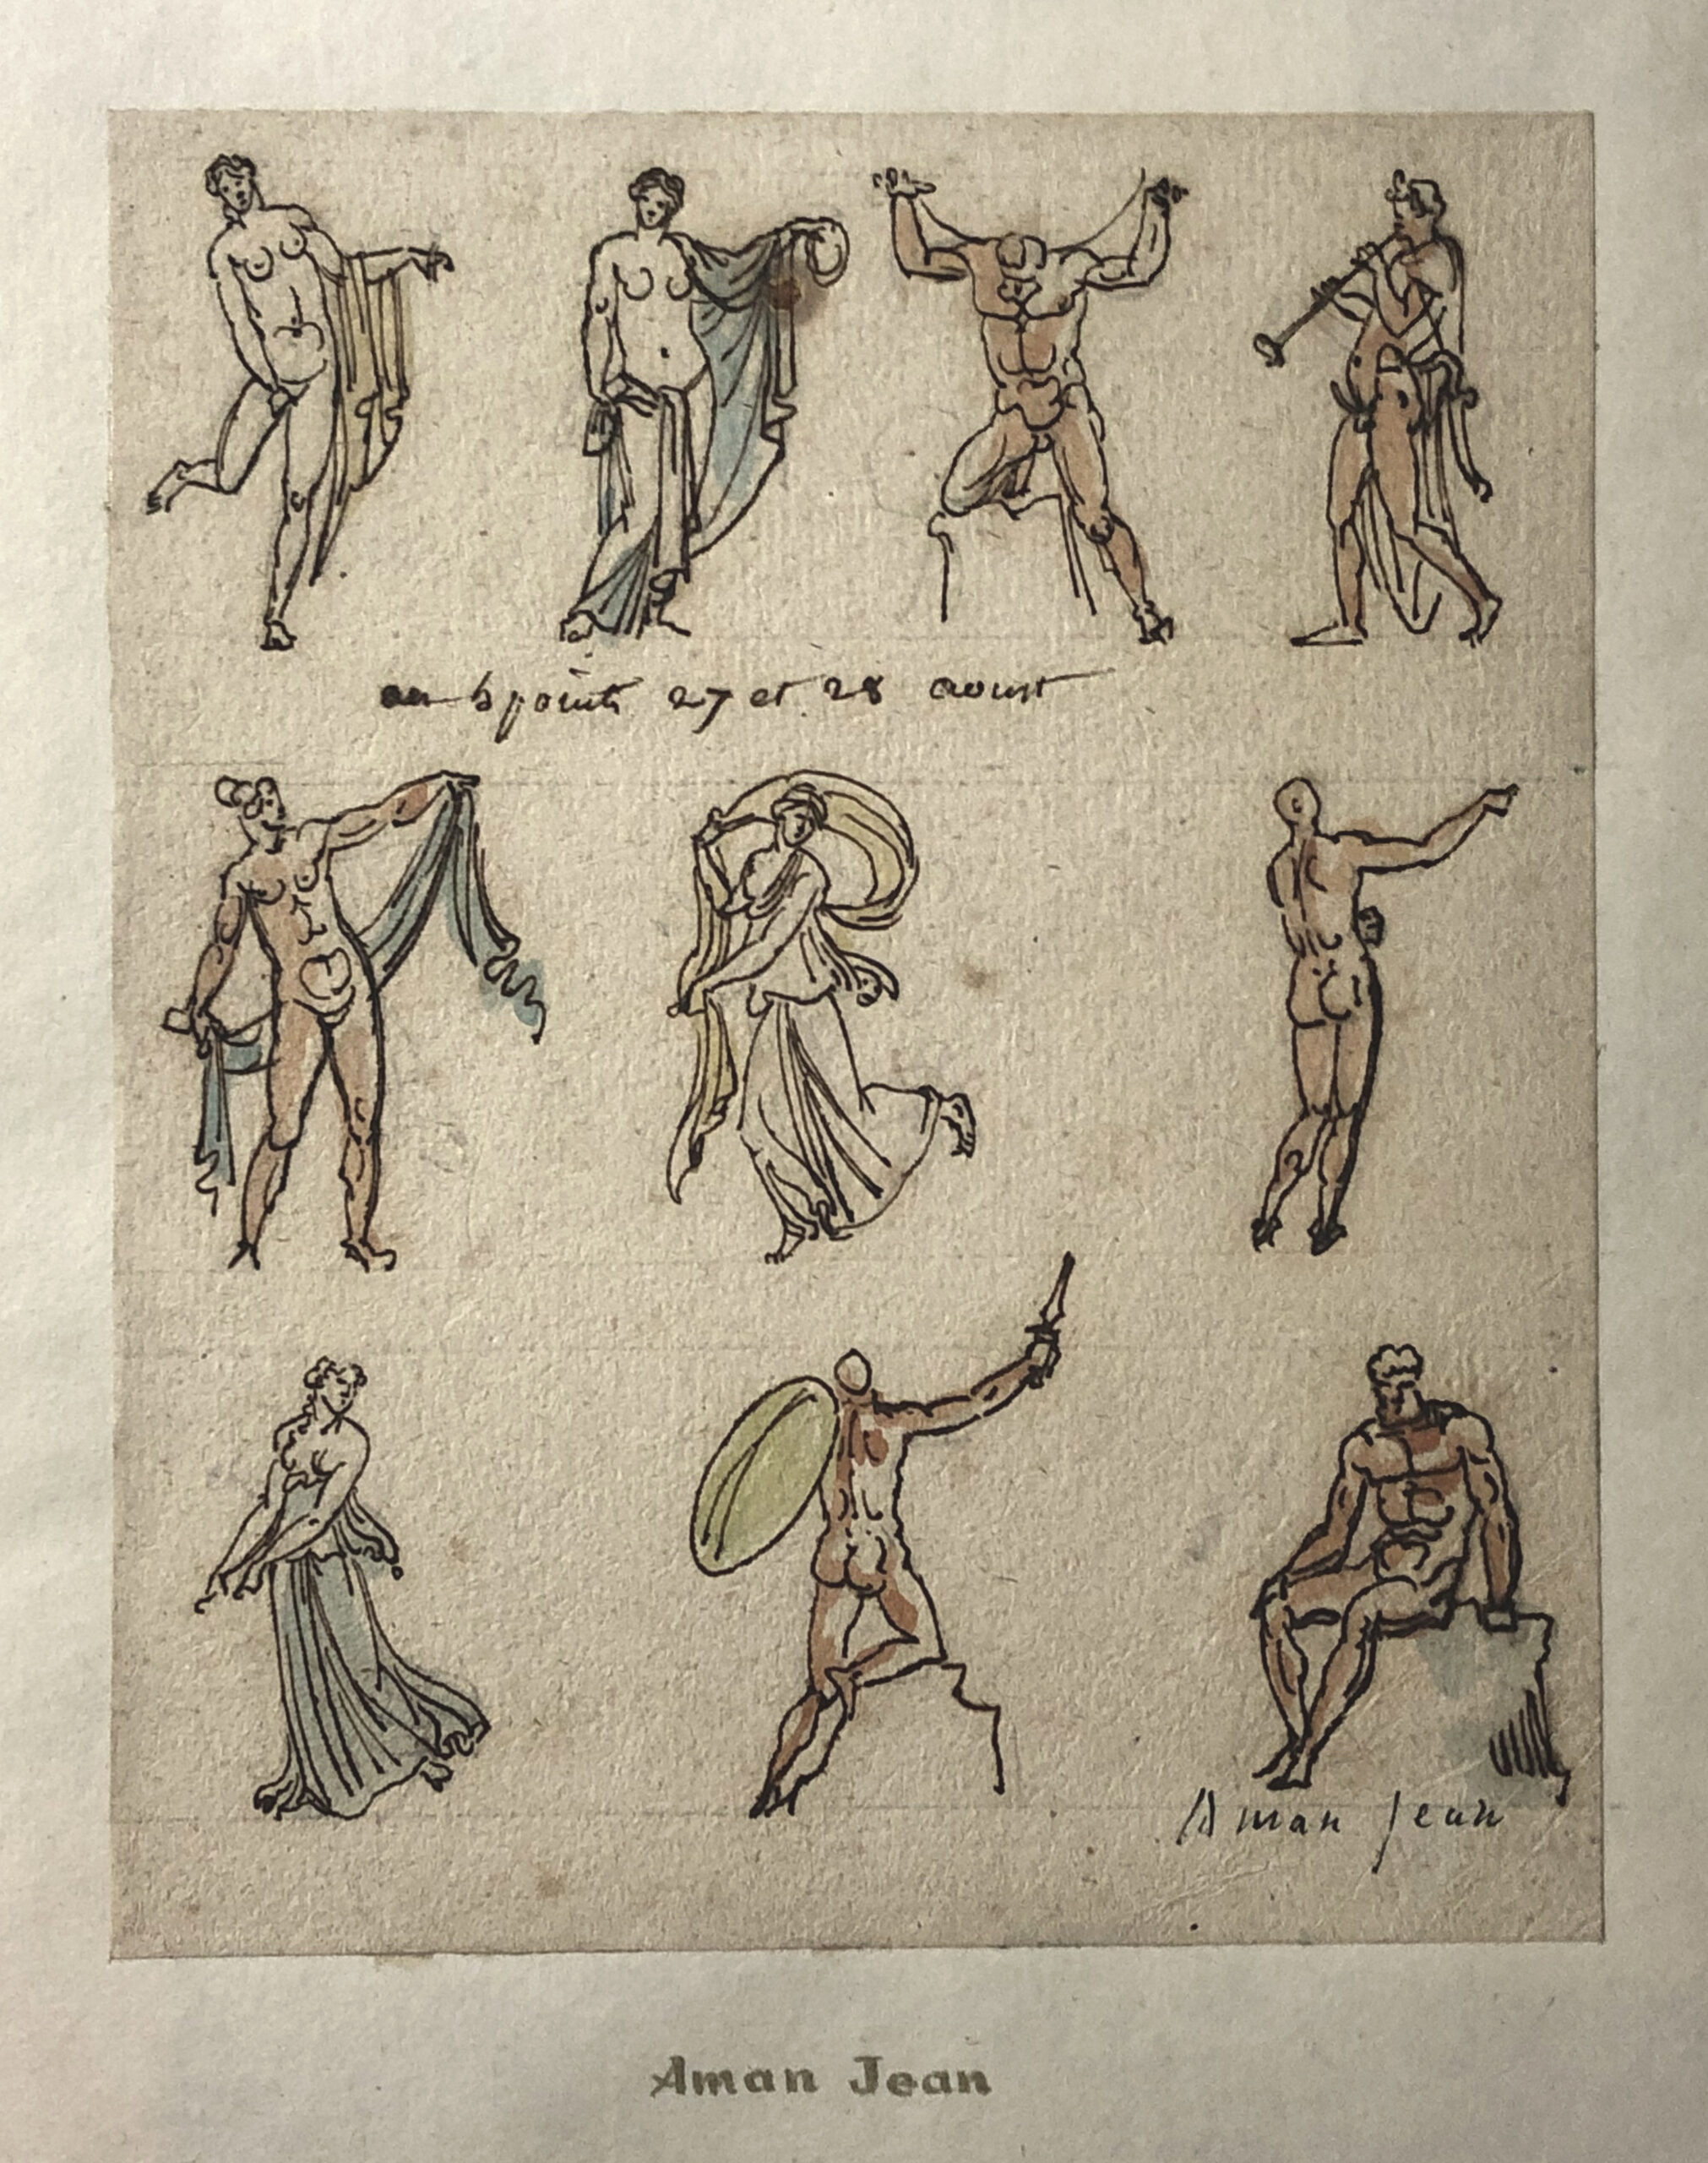 points 27 et 28 aoust
Aman Jean
Aman Jean